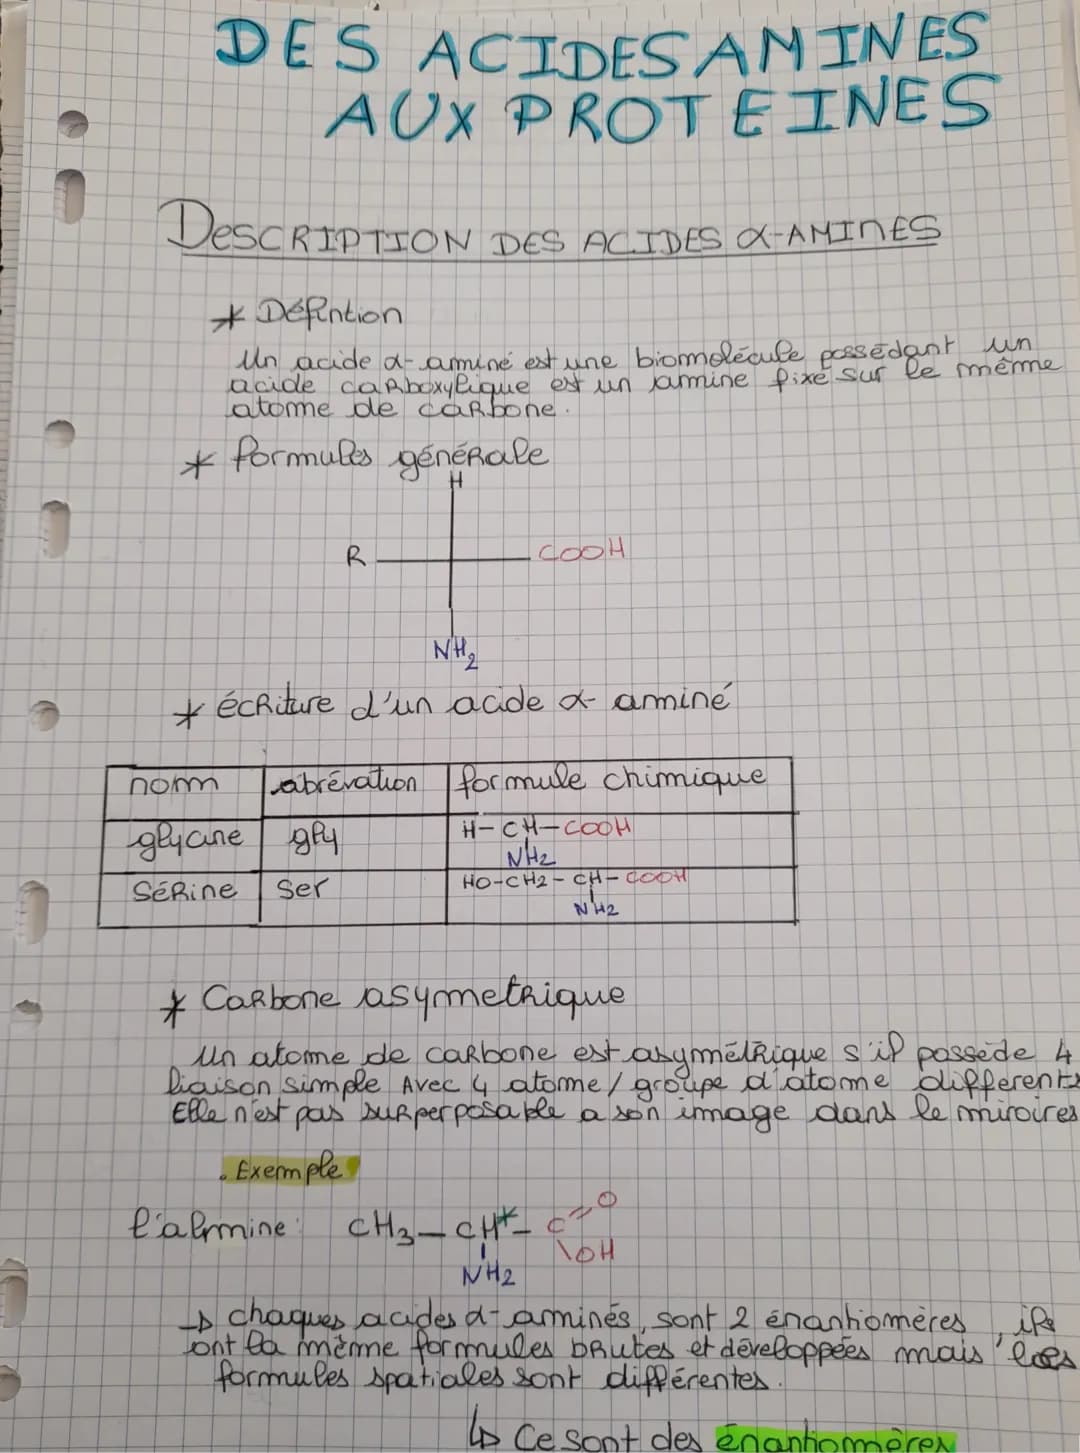 DES ACIDES AMINES
AUX PROTEINES
DESCRIPTION DES ACIDES α-AMINES
* Défintion
Un acide α-aminé est une biomolécule possédant un
acide carboxylique est un amine fixé sur le même
atome de carbone.
* formules générale
H
R COOH
NH2
* écriture d'un acide α-aminé
nom abrévation formule chimique
glycine gly H-CH-COOH
NH2
Sérine Ser HO-CH2-CH-COOH
NH2
* Carbone asymetrique
Un atome de carbone est asymétrique s'il possède 4
liaison simple Avec 4 atome/groupe d'atome différents
Elle n'est pas surperposable a son image dans le miroires
. Exemple
l'almine: CH3-CH*-C=O
\OH
NH2
→ chaques acides α-aminés, sont 2 énantiomères, ils
ont la même formules brutes et développées mais les
formules spatiales sont différentes.
↳ Ce sont des énantiomères